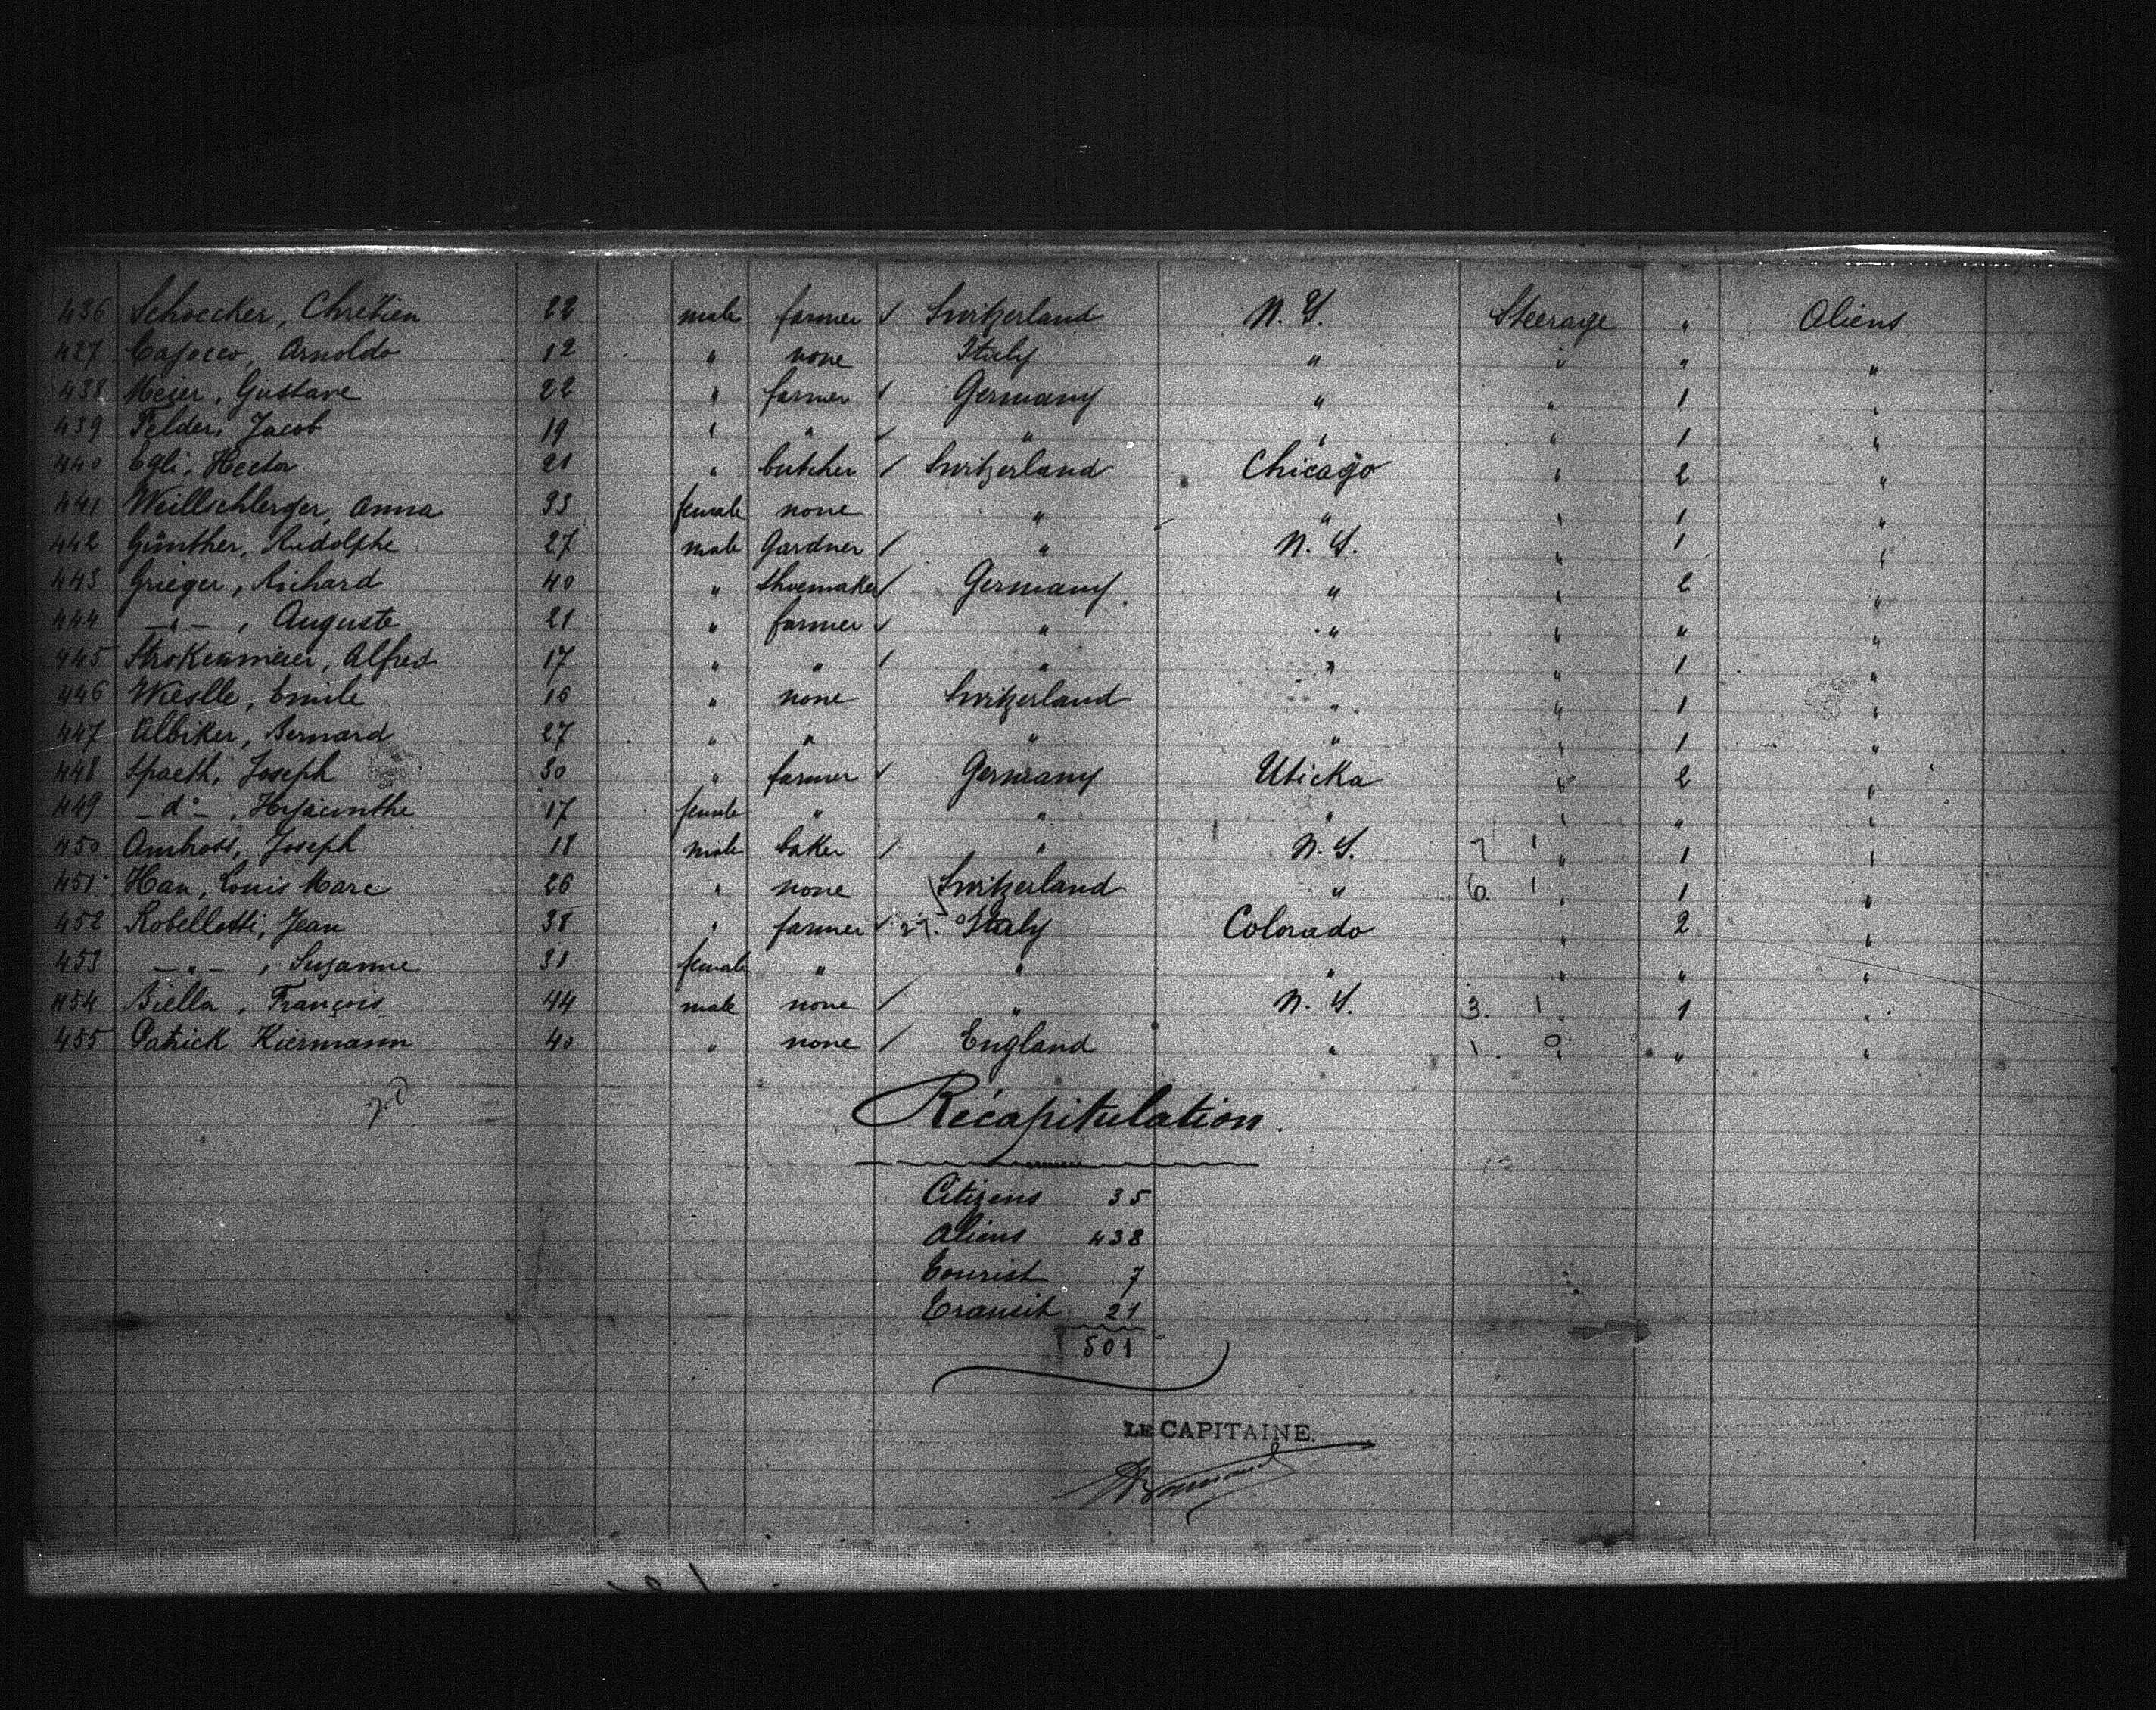 436 Schoecker, Chrétien 22 male farmer ✓ Switzerland N. Y. Steerage " Aliens
427 Cajocco, Arnoldo 12 " none Italy " " " "
438 Meier, Gustave 22 " farmer / Germany " " 1 "
439 Felder, Jacob 19 " " / " " " 1 "
440 Egli, Hector 21 " butcher / Switzerland Chicago " 2 "
441 Weillschlerger, Anna 33 female none " " " 1 "
442 Günther, Rudolphe 27 male Gardner / " N. Y. " 1 "
443 Grieger, Richard 40 " Shoemaker / Germany. " " 2 "
444 —"— , Auguste 21 " farmer ✓ " " " " "
445 Strokenmeier, Alfred 17 " " / " " " 1 "
446 Wieslle, Emile 16 " none Switzerland " " 1 "
447 Albiker, Bernard 27 " " " " " 1 "
448 Spaeth, Joseph 30 " farmer ✓ Germany Uticka " 2 "
449 —d°— , Hyacinthe 17 female " " " " " "
450 Amhoss, Joseph 18 male baker / " N. Y. 7 1 " 1 "
451 Han, Louis Marc 26 " none Switzerland " 6. 1 " 1 "
452 Robellotti, Jean 38 " farmer / Italy Colorado " 2 "
453 —"— , Suzanne 31 female " " " " " "
454 Biella, François 44 male none / " N. Y. 3. 1 " 1 "
455 Patrick Kiermann 40 " none / England " 1. 0 " " "
Récapitulation.
Citizens 35
Aliens 438
Tourist 7
Transit 21
501
LE CAPITAINE.